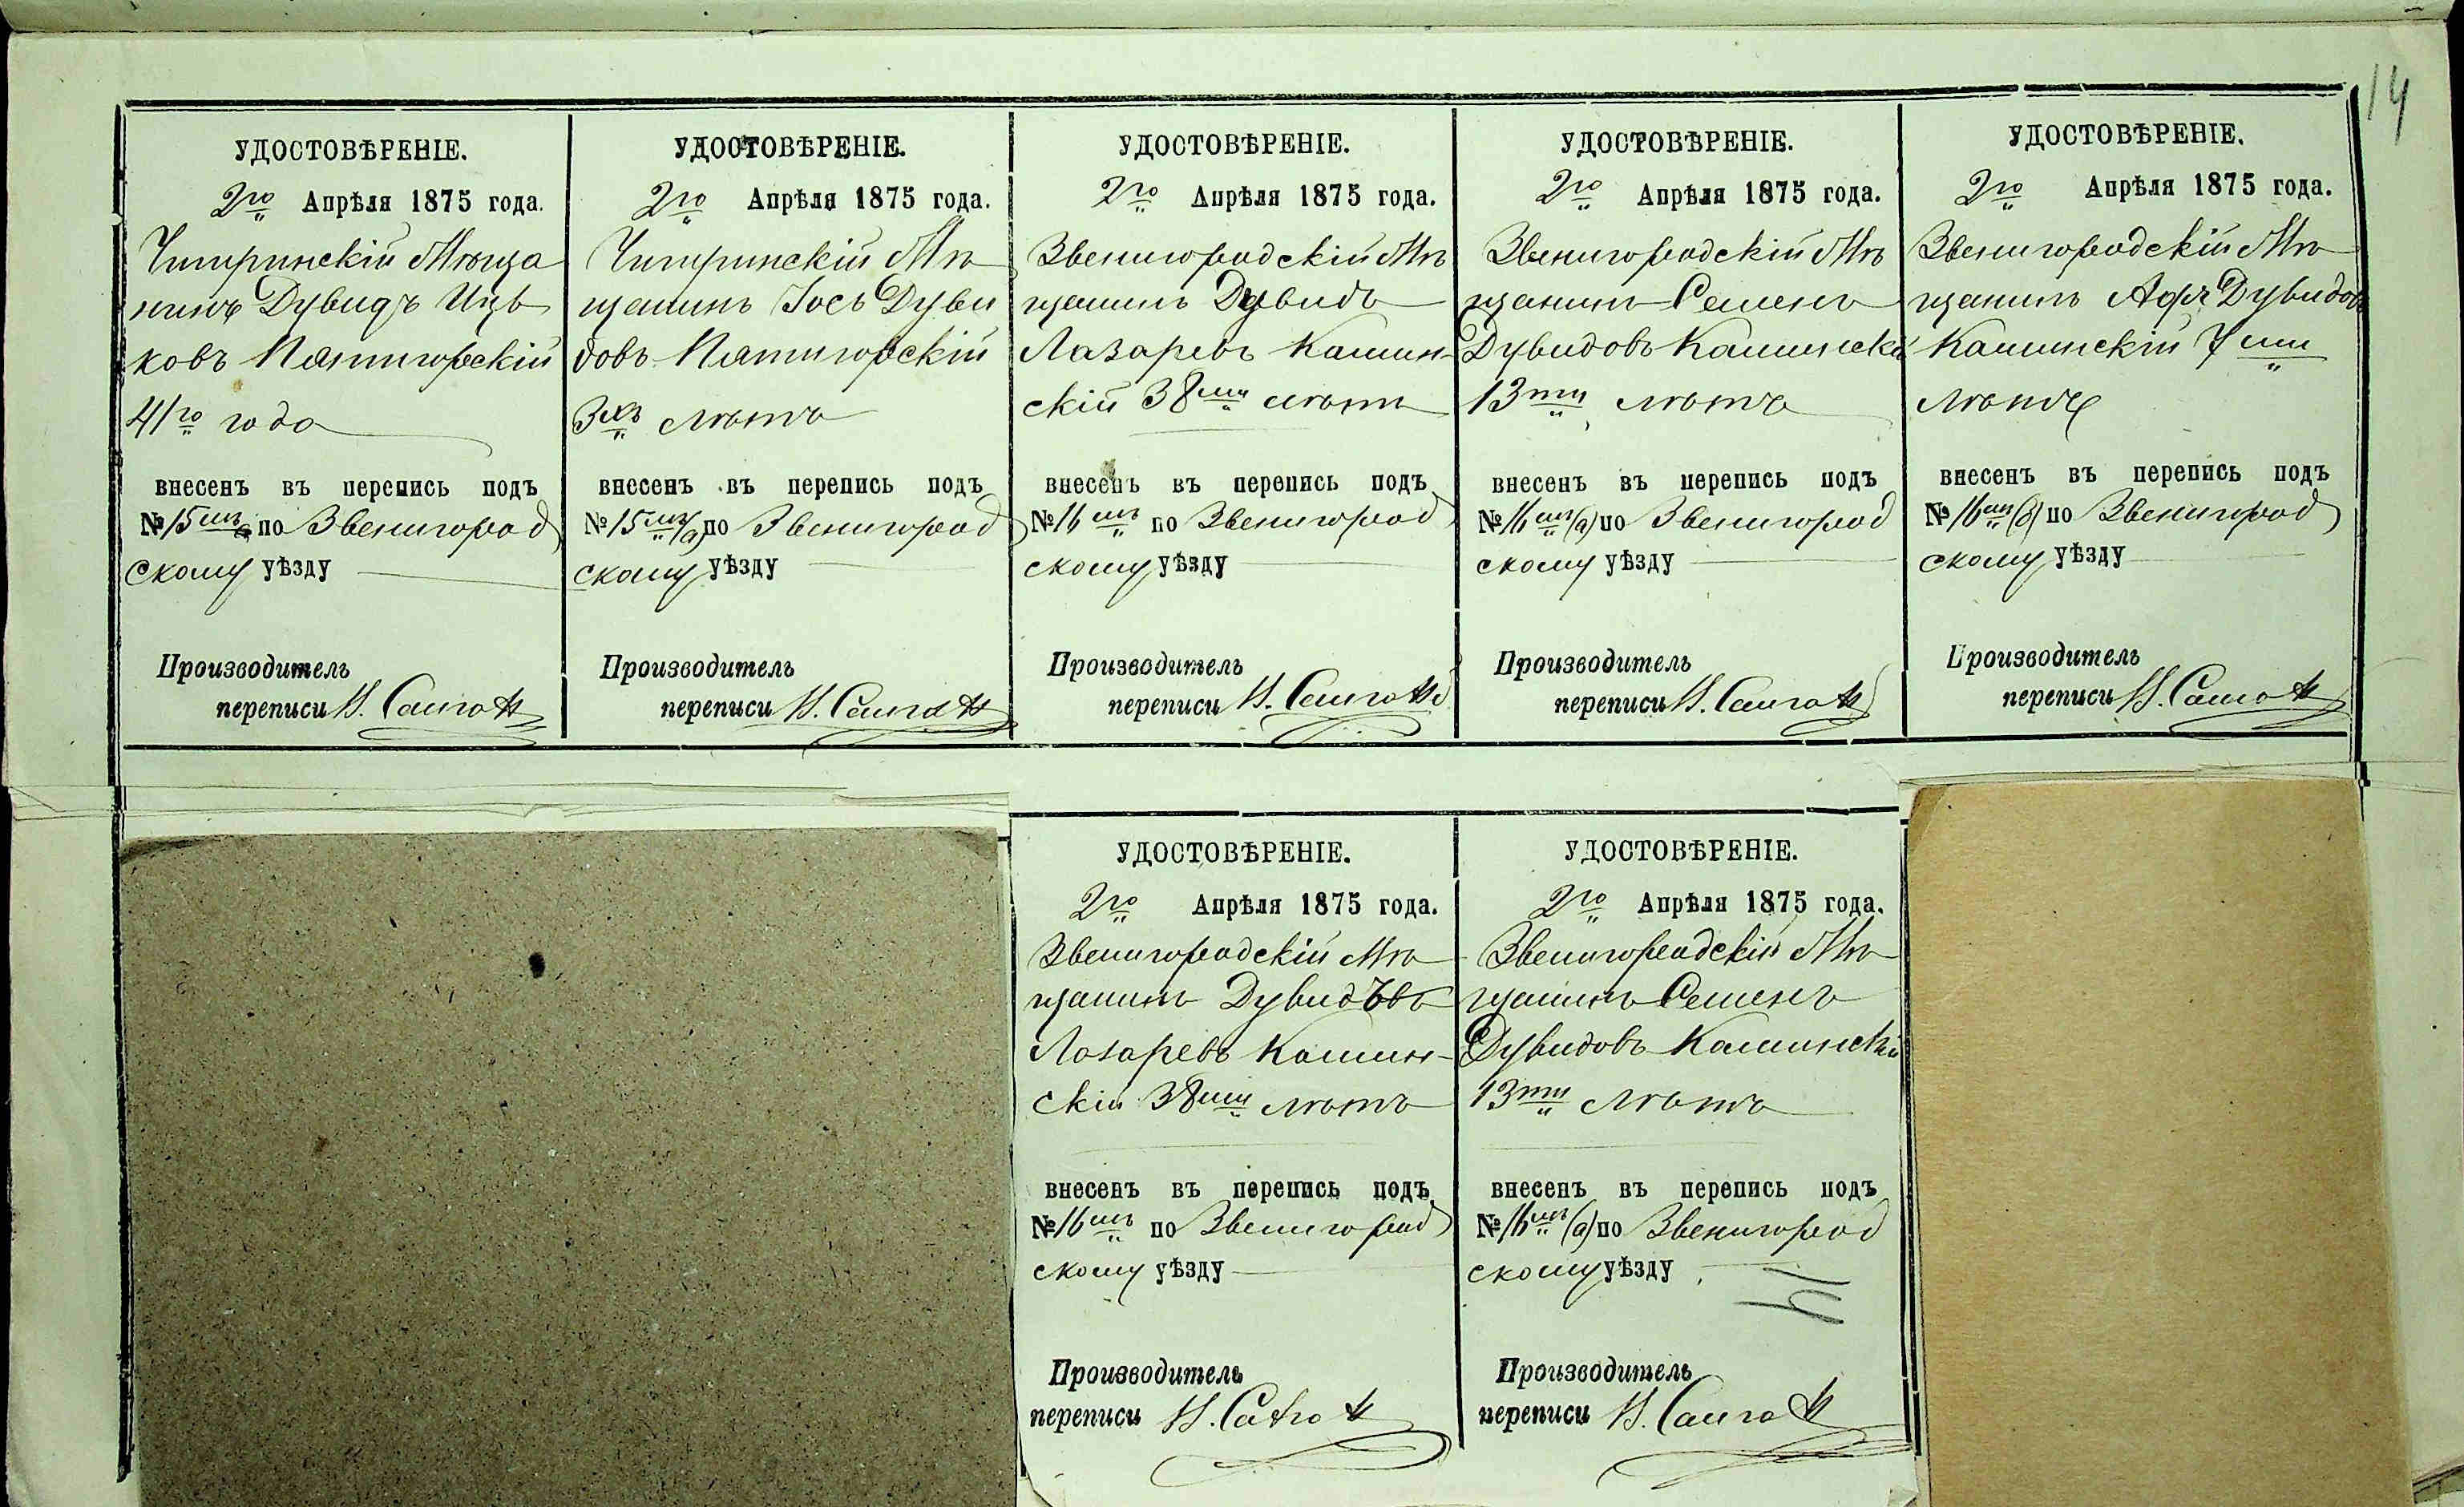 14
УДОСТОВѢРЕНІЕ.
2го Апрѣля 1875 года.
Чигиринскій Мѣща
нинъ Дувидъ Ицъ
ковъ Пятигорскій
41го года
внесенъ въ перепись подъ
№ 15мъ по Звенигород
скому уѣзду
Производитель
переписи
УДОСТОВѢРЕНІЕ.
2го Апрѣля 1875 года.
Чигиринскій Мѣ
щанинъ Іось Дуви
довъ Пятигорскій
3хъ лѣтъ
внесенъ въ перепись подъ
№ 15мъ (а) по Звенигород
скому уѣзду
Производитель
переписи
УДОСТОВѢРЕНІЕ.
2го Апрѣля 1875 года.
Звенигородскій Мѣ
щанинъ Дувидъ
Лазаревъ Камин-
скій 38ми лѣтъ
внесенъ въ перепись подъ
№ 16мъ по Звенигород
скому уѣзду
Производитель
переписи
УДОСТОВѢРЕНІЕ.
2го Апрѣля 1875 года.
Звенигородскій Мѣ
щанинъ Семенъ
Дувидовъ Каминскій
13ти лѣтъ
внесенъ въ перепись подъ
№ 16мъ (а) по Звенигород
скому уѣзду
Производитель
переписи
УДОСТОВѢРЕНІЕ.
2го Апрѣля 1875 года.
Звенигородскій Мѣ
щанинъ Дувидовъ
Каминскій 7ми
лѣтъ
внесенъ въ перепись подъ
№ 16мъ (б) по Звенигород
скому уѣзду
Производитель
переписи
УДОСТОВѢРЕНІЕ.
2го Апрѣля 1875 года.
Звенигородскій Мѣ
щанинъ
Лазаревъ Камин-
скій 38ми лѣтъ
внесенъ въ перепись подъ
№ 16мъ по Звенигород
скому уѣзду
Производитель
переписи
УДОСТОВѢРЕНІЕ.
2го Апрѣля 1875 года.
Звенигородскій Мѣ
щанинъ Семенъ
Дувидовъ Каминскій
13ти лѣтъ
внесенъ въ перепись подъ
№ 16мъ (а) по Звенигород
скому уѣзду
14
Производитель
переписи